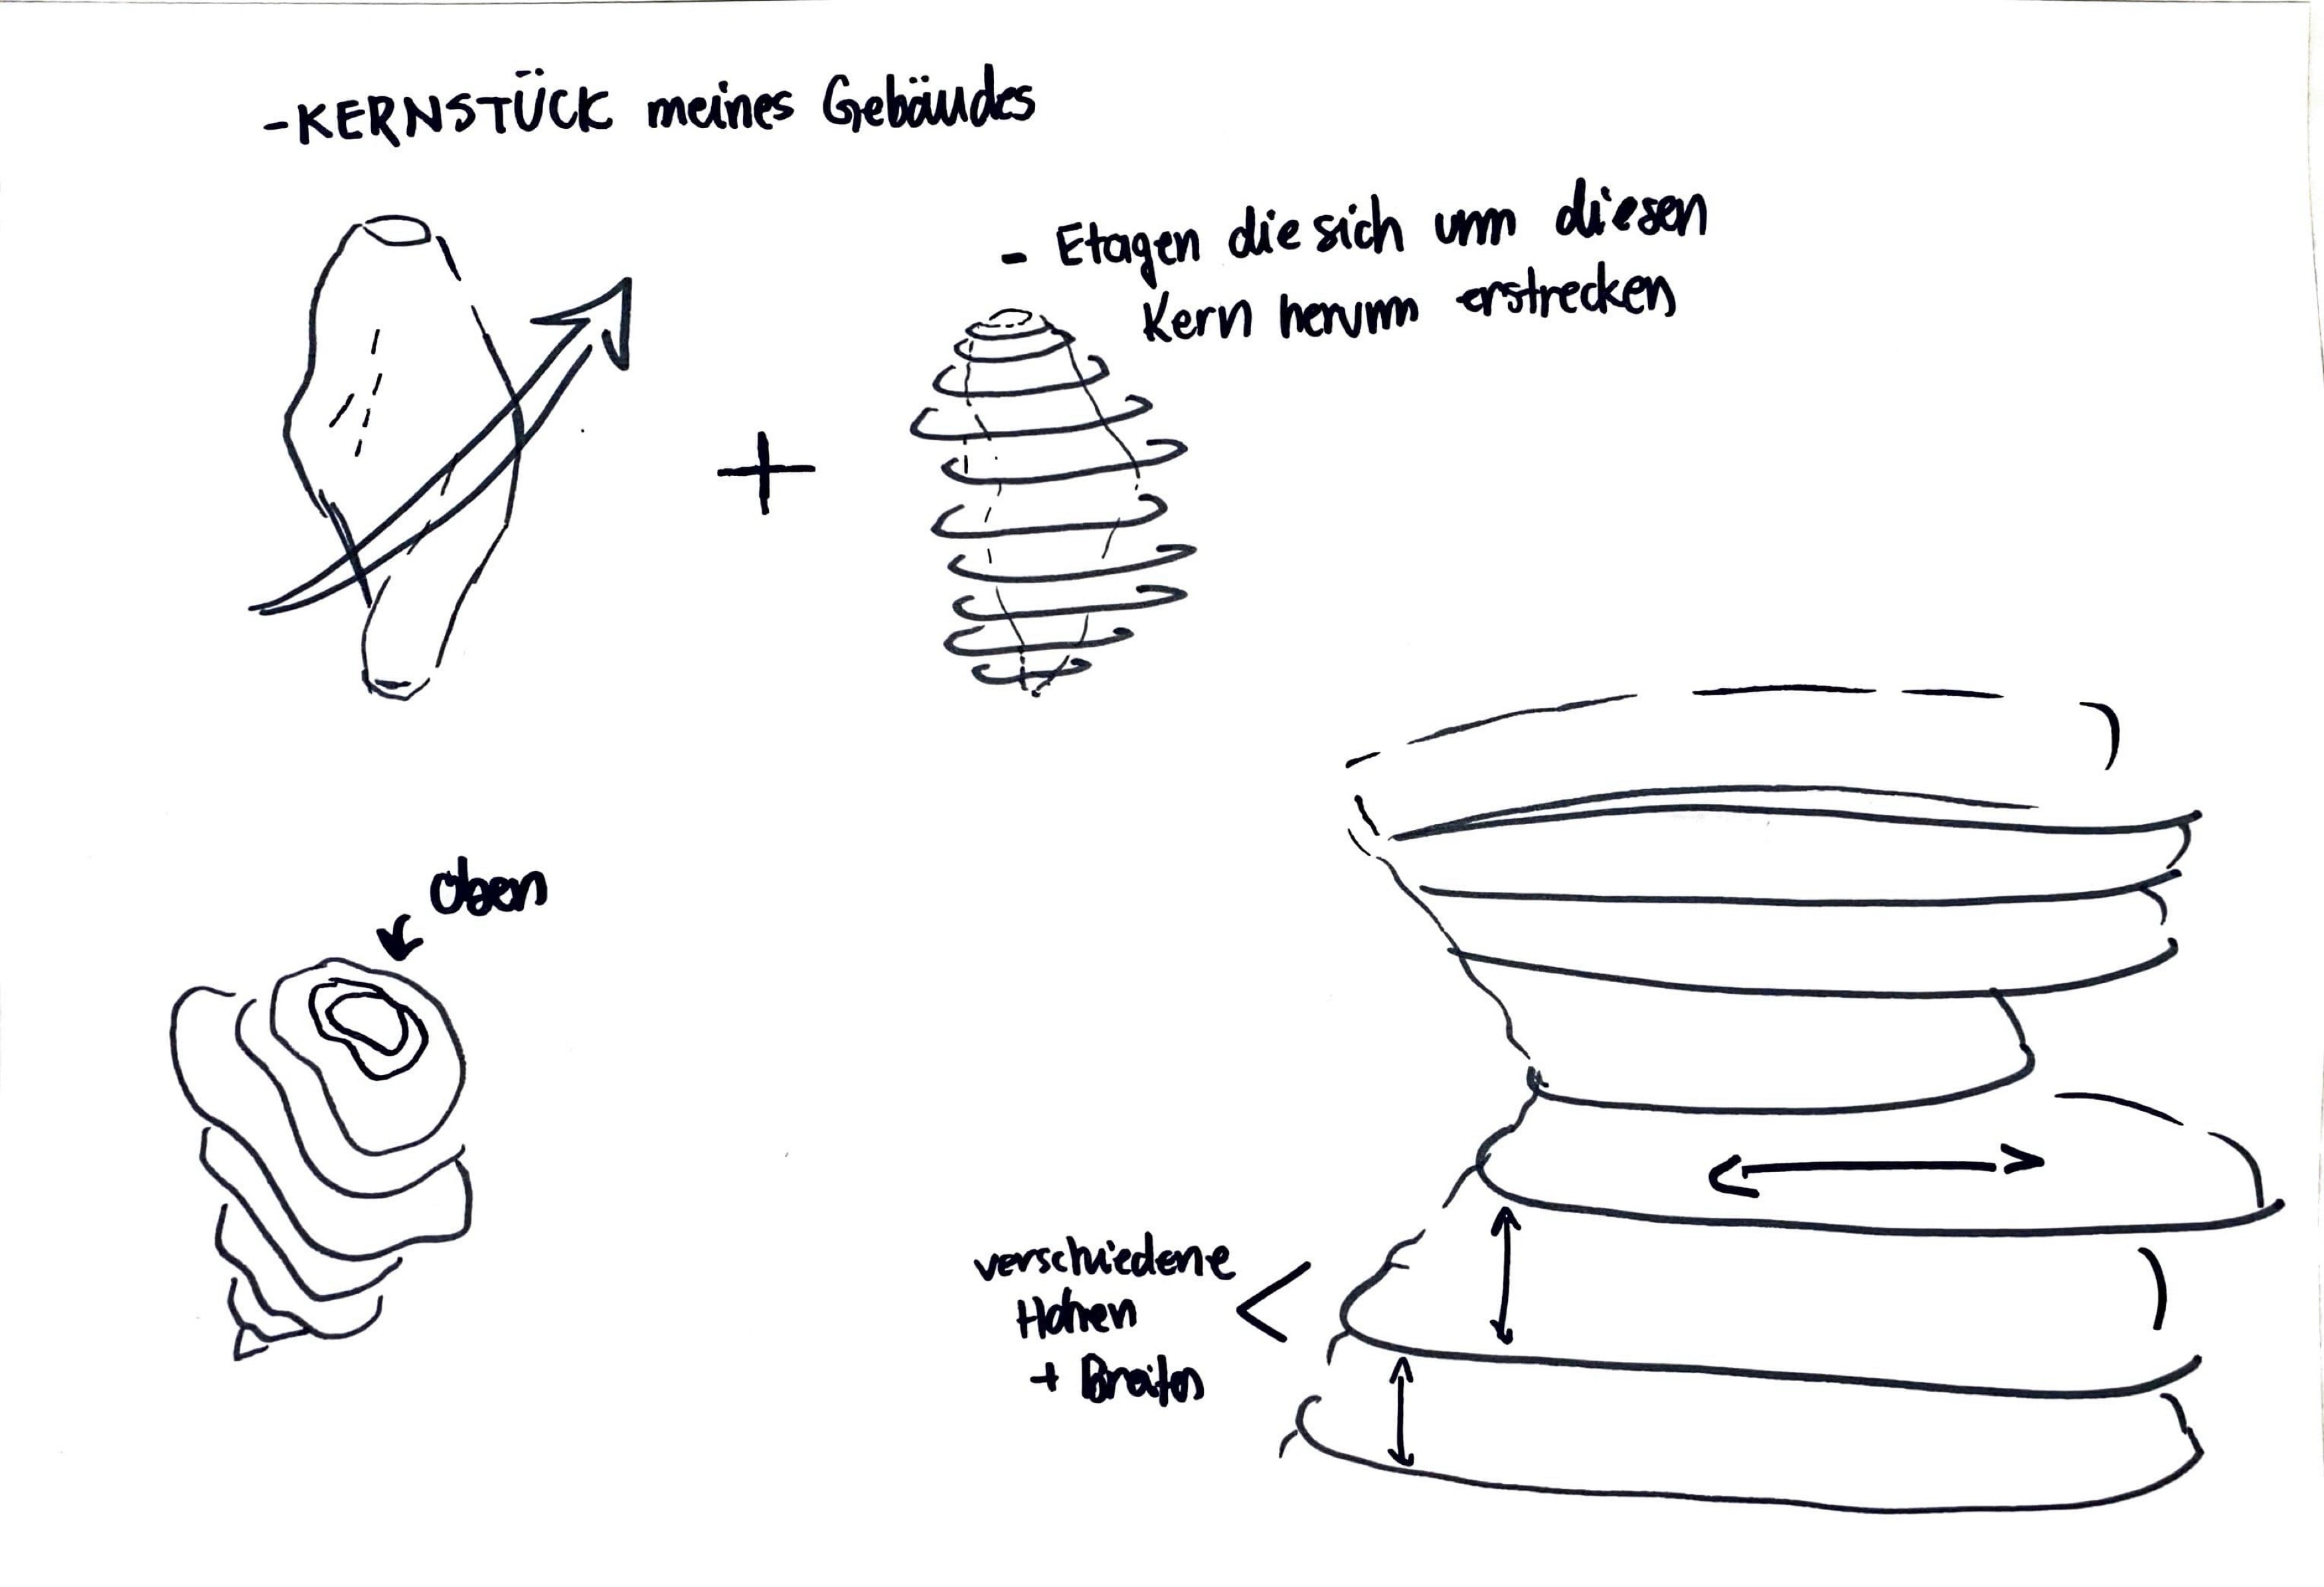 - KERNSTÜCK meines Gebäudes
- Etagen die sich um diesen
Kern herum erstrecken
+
Oben
verschiedene
Höhen
+ Breiten